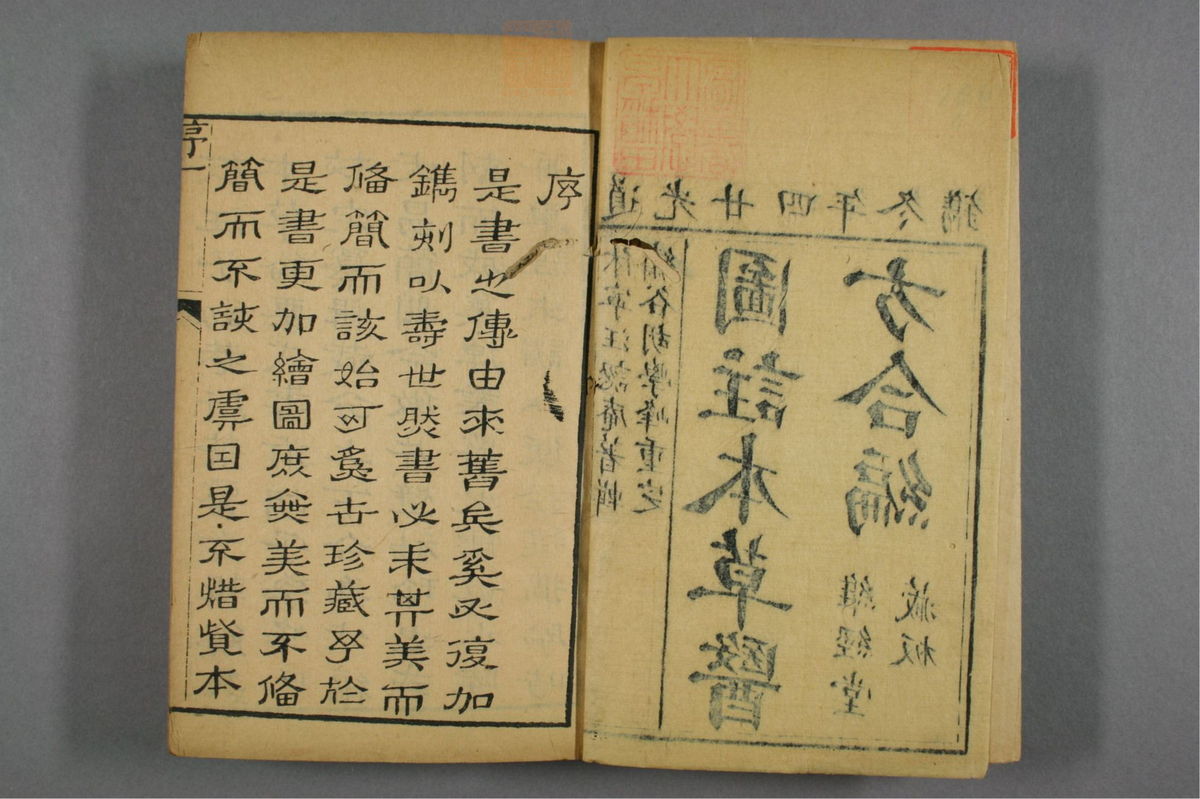 道光廿四年冬鐫
休寧汪訒庵著輯
繡谷胡學峰重定
圖註本草醫
方合編
維經堂
藏板
序
是書之傳由來舊矣奚又復加
鐫刻以壽世然書必求其美而
俻簡而該始可為世珍藏予於
是書更加繪圖庶無美而不俻
簡而不該之虞因是不惜貲本
序一